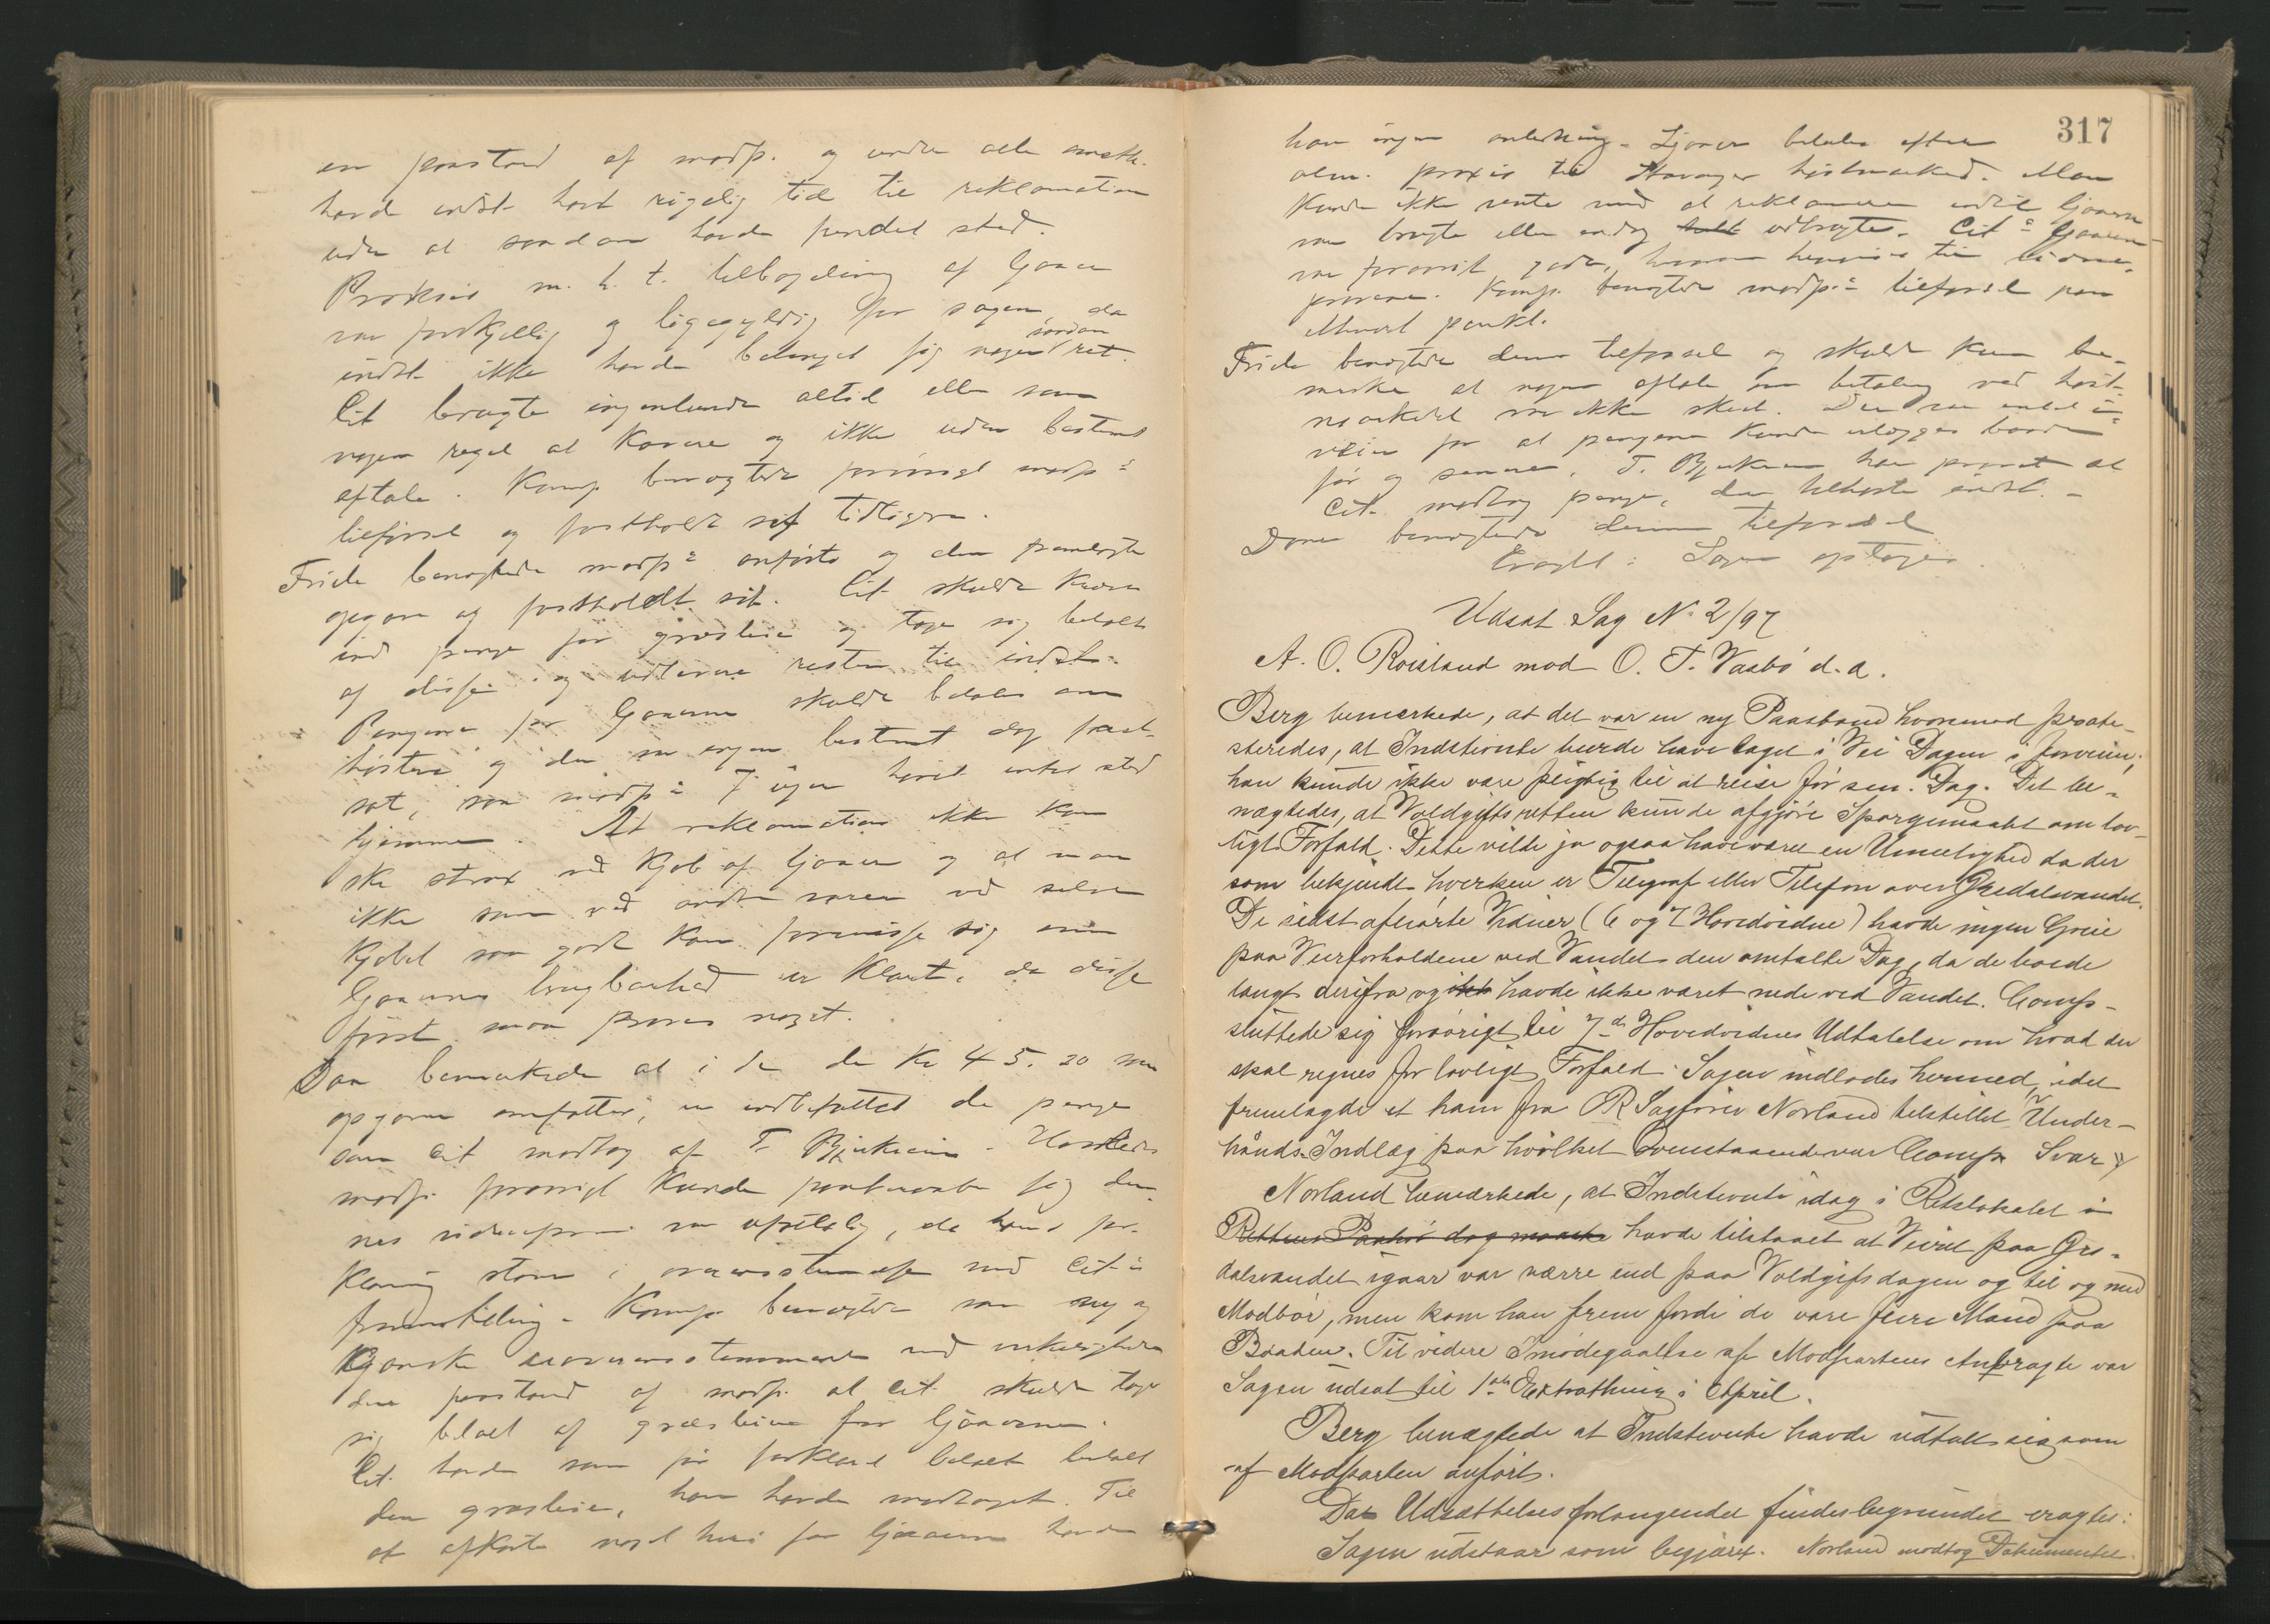 en paastand af modp. og under alle omst.
havde indst. havt rigelig tid til reklamation
uden at saadan havde fundet sted.
Praksis m. h. t. tilbagelevering af ljaaer
var forskjellig og ligegyldig for sagen, da
indst. ikke havde betinget sig nogen saadan ret.
Cit. brugte ingenlunde altid eller som
nogen regel at kavere og ikke uden bestemt
aftale. Komp. benægtede forøvrigt modp.s
tilførsel og fastholdt sit tidligere.
Fride benægtede modp.s anførte og den fremlagte
opgave og fastholdt sit. Cit. skulde kræve
ind penge for græsleie og tage sig betalt
af disse og udlevere resten til indst.
Pengene for ljaaerne skulde betales om
høsten og der var ingen bestemt dag fast-
sat, saa modp.s 7 uger hører intet sted
hjemme. At reklamation ikke kan
ske strax ved kjøb af ljaaer og at man
ikke som ved andre varer ved selve
kjøbet saa godt kan forvisse sig om
ljaaernes brugbarhed er klart, da disse
først maa prøves noget.
Daa bemærkede at i de Kr 45.20 som
opgaven omfatter, er indbefattet de penge
som cit. modtog af T. Bjerkreim. Hvorledes
modp. forøvrigt kunde paaberaabe sig den-
nes vidneprov var ufattelig, da hans for-
klaring stod i overensstemmelse med cit.s
fremstilling. Komp. benægtede som ny og
ganske uoverensstemmende med virkeligheden
den paastand af modp. at cit. skulde tage
sig betalt af græsleien for ljaaerne.
Cit. havde som før forklaret betalt
den græsleie, han havde modtaget. Til
at afkorte noget heri for ljaaerne havde
317
han ingen anledning. Ljaaer betales efter
alm. praxis til Stavanger høstmarked. Man
kunde ikke vente med at reklamere indtil ljaaerne
var brugte eller endog udbrugte. Cit.s ljaaer
var forøvrigt gode, hvorom henvises til vidne-
provene. Komp. benægtede modp.s tilførsel paa
ethvert punkt.
Fride benægtede denne tilførsel og skulde kun be-
mærke at nogen aftale om betaling ved høst-
markedet var ikke skeet. Der var intet i
veien for at pengene kunde erlægges baade
før og senere. T. Bjerkreim har prøvet at
cit. modtog penge, der tilhørte indst. -
Daae benægtede denne tilførsel
Eragtet: Sagen optages.
Udsat Sag No 2/97
A. O. Røisland mod O. T. Vasbø d.a.
Berg bemærkede, at det var en ny Paastand hvorimod prote-
steredes, at Indstevnte burde have taget i Vei Dagen i forveien;
han kunde ikke være pligtig til at reise før sen. Dag. Det be-
nægtedes, at Voldgiftsretten kunde afgjøre Spørgsmaalet om lov-
ligt Forfald. Dette vilde jo ogsaa have været en Umulighed da der
som bekjendt hverken er Telegraf eller Telefon over Ørsdalsvandet.
De sidst afhørte Vidner (6 og 7 Hovedvidne) havde ingen Greie
paa Veirforholdene ved Vandet den omtalte Dag, da de boede
langt derifra og ikke havde ikke været nede ved Vandet. Comp.
sluttede sig forøvrigt til 7de Hovedvidnes Udtalelse om hvad der
skal regnes for lovligt Forfald. Sagen indlodes hermed, idet
fremlagde et ham fra RSagfører Norland tilstillet Under-
haands Indlæg paa hvilket ovenstaaende var Comp. Svar
Norland bemærkede, at Indstevnte idag i Retslokalet i
Rettens Paahør dog maaske havde tilstaaet at Veiret paa Ørs-
dalsvandet igaar var værre end paa Voldgiftsdagen og til og med
Modbør, men kom han frem fordi de vare flere Mand paa
Baaden. Til videre Imødegaaelse af Modpartens Anbragte var
Sagen udsat til 1ste Extrathing i April.
Berg benægtede at Indstevnte havde udtalt sig som
af Modparten anført.
Da Udsættelsesforlangendet findes begrundet eragtes:
Sagen udstaar som begjært. Norland modtog Dokumentet.